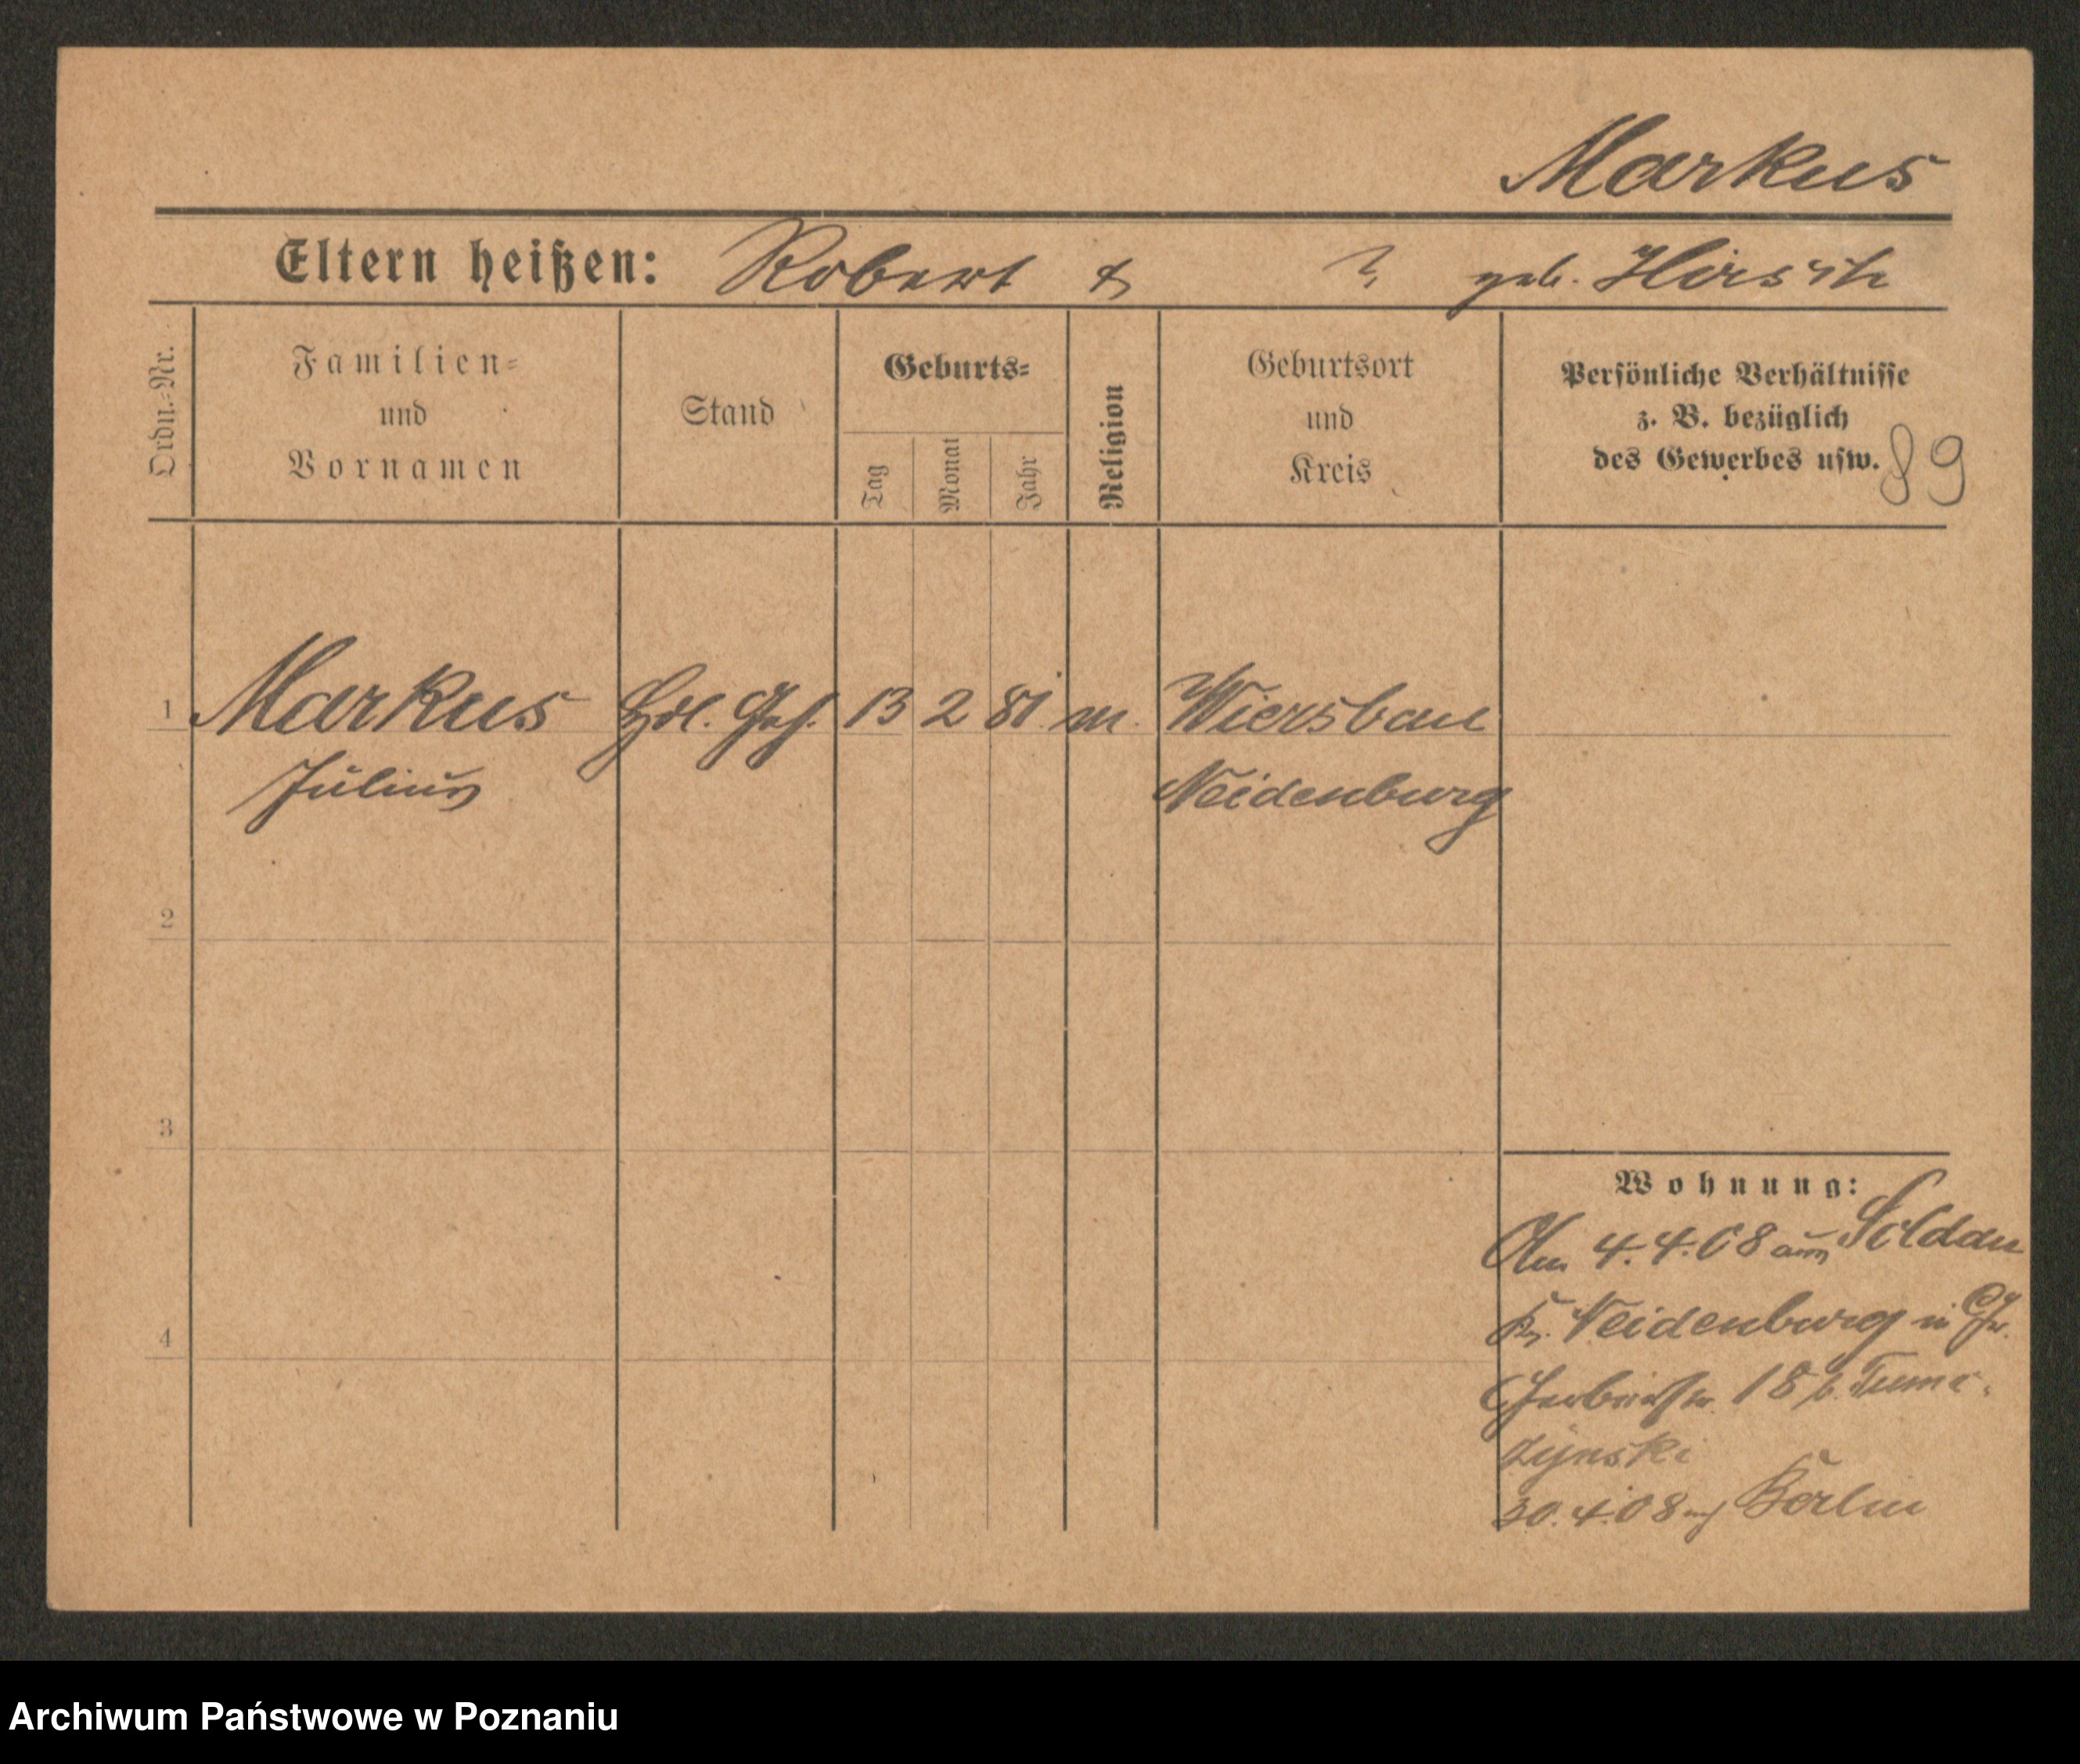 Markus
Eltern heißen: Robert & ? geb. Hirsch
Ordn.-Nr.
Familien-
und
Vornamen
Stand
Geburts-
Tag
Monat
Jahr
Religion
Geburtsort
und
Kreis
Persönliche Verhältnisse
z. B. bezüglich
des Gewerbes usw.
89
1 Markus Hdl. Geh. 13 2 81 m. Wiersbau
Julius Neidenburg
2
3
4
Wohnung:
Am 4.4.08 aus Soldau
Kr. Neidenburg in
18 b.
zynski
30.4.08 Berlin
Archiwum Państwowe w Poznaniu